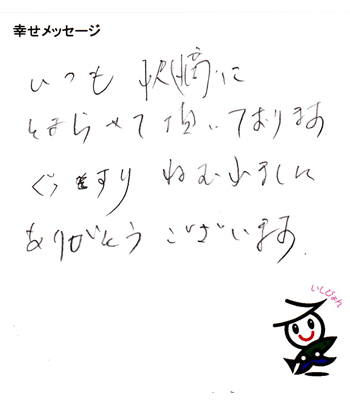 幸せメッセージ
いつも 快適に
とまらせて頂いております
ぐっすり ねむれました
ありがとう ございます
いしぴょん